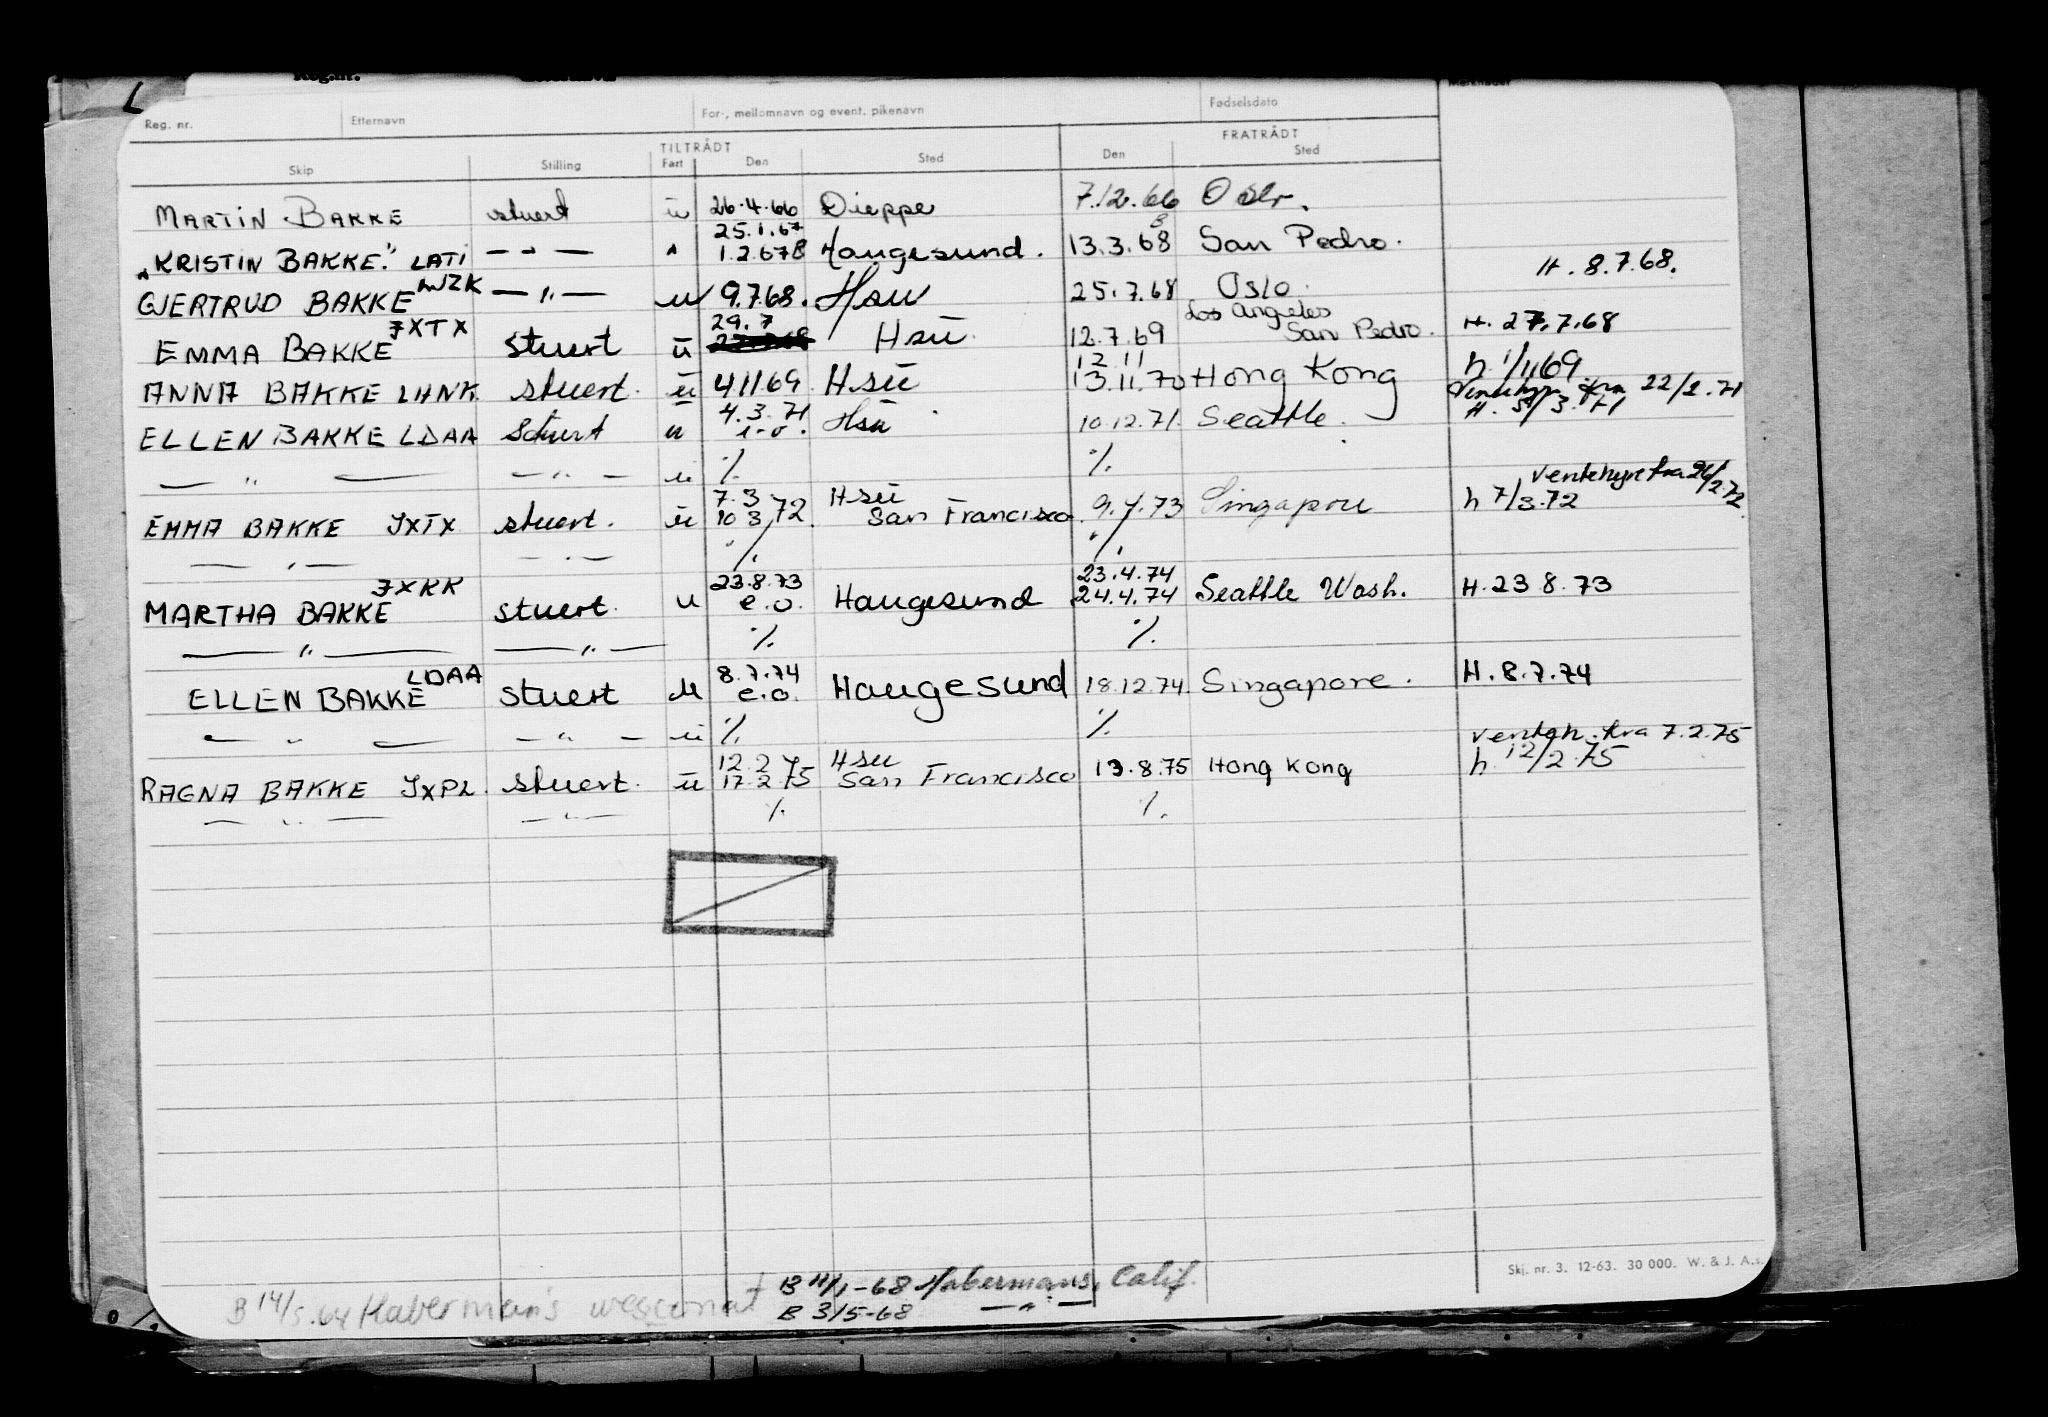 L
Reg. nr. Etternavn For-, mellomnavn og event. pikenavn Fødselsdato
TILTRÅDT FRATRÅDT
Skip Stilling Fart Den Sted Den Sted
MARTIN BAKKE stuert u 26.4.66 Dieppe 7.12.66 Oslo.
25.1.67
"KRISTIN BAKKE." LATI — " — " 1.2.67 B Haugesund. 13.3.68 San Pedro.
H. 8.7.68.
GJERTRUD BAKKE — " — u 9.7.68. Hsu 25.7.68 Oslo.
29.7 Los Angeles
EMMA BAKKE JXTX stuert ü Hsü. 12.7.69 San Pedro. H. 27.7.68
12 11
ANNA BAKKE LHNK. stuert. ü 4.11.69 Hsü 13.11.70 Hong Kong h. 1/11.69
4.3.71 fra 22/2.71
ELLEN BAKKE LDAA stuert u e.o. Hsü 10.12.71. Seattle. H. 5/3.71
— " — — " — ü ·/. ·/.
ventehyre fra 26/2.72.
7.3 Hsü
EMMA BAKKE JXTX stuert. ü 10 3/72 San Francisco. 9.7.73 Singapore h 7/3.72
— " — — " — ·/. ·/.
JXKR 23.8.73 23.4.74
MARTHA BAKKE stuert. u e.o. Haugesund 24.4.74 Seattle Wash. H. 23 8.73
— " — — " — ·/. ·/.
LDAA 8.7.74
ELLEN BAKKE stuert u e.o. Haugesund 18.12.74. Singapore. H. 8.7.74
— " — — " — ü ·/. ·/.
venteh. fra 7.2.75
12.2 Hsü
RAGNA BAKKE JXPL. stuert. ü 17.2/75 San Francisco 13.8.75 Hong Kong h. 12/2.75
— " — — " — ·/. ·/.
Skj. nr. 3. 12-63. 30 000. W. & J. A.s.
B 14/5.64 Haberman's
B 11/1-68 Habermans, Calif.
B 3/5-68 — " —